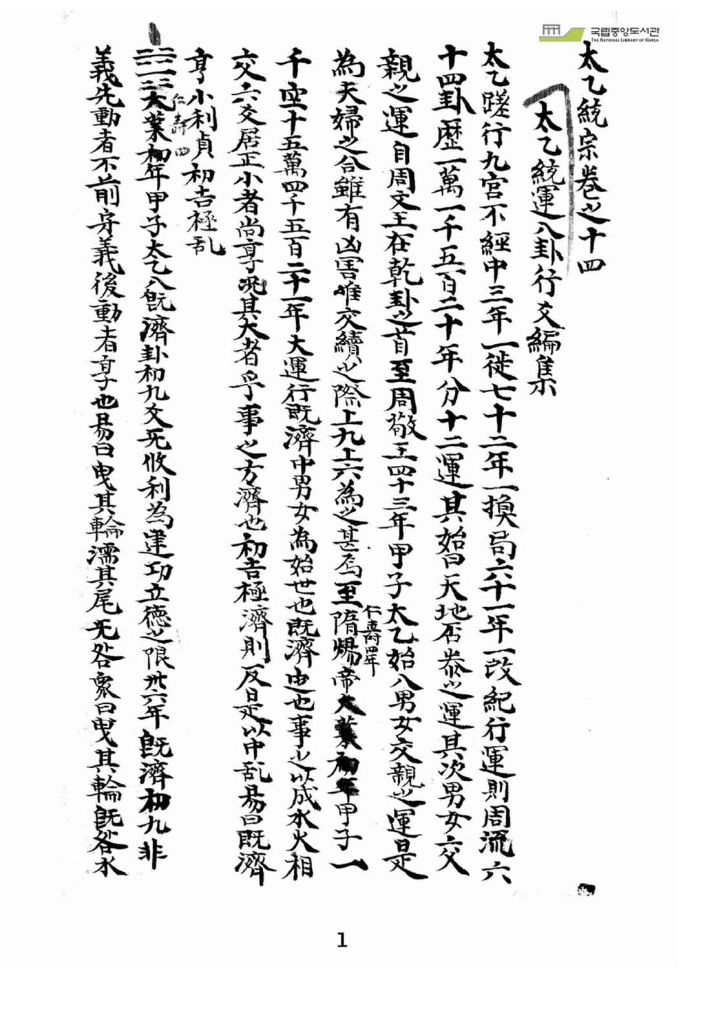 국립중앙도서관
THE NATIONAL LIBRARY OF KOREA
太乙統宗卷之十四
太乙統運八卦行爻編集
太乙蹉行九宮不經中三年一徙七十二年一換局六十一年一改紀行運則周流六
十四卦歷一萬一千五百二十年分十二運其始曰天地否泰之運其次男女交
親之運自周文王在乾卦之首至周敬王四十三年甲子太乙始入男女交親之運是
為夫婦之合雖有凶害唯交續之際上九上六為之甚焉至隋煬帝大業初年甲子一
仁壽四年
千空十五萬四千五百二十一年大運行既濟中男女為始世也既濟由也事之以成水火相
交六爻居正小者尚亨況其大者乎事之方濟也初吉極濟則反是以中乱易曰既濟
亨小利貞初吉極乱
仁壽四
大業初年甲子太乙入既濟卦初九爻無攸利為建功立德之限卅六年既濟初九非
義先動者不前身義後動者亨也易曰曳其輪濡其尾无咎象曰曳其輪既咎水
1